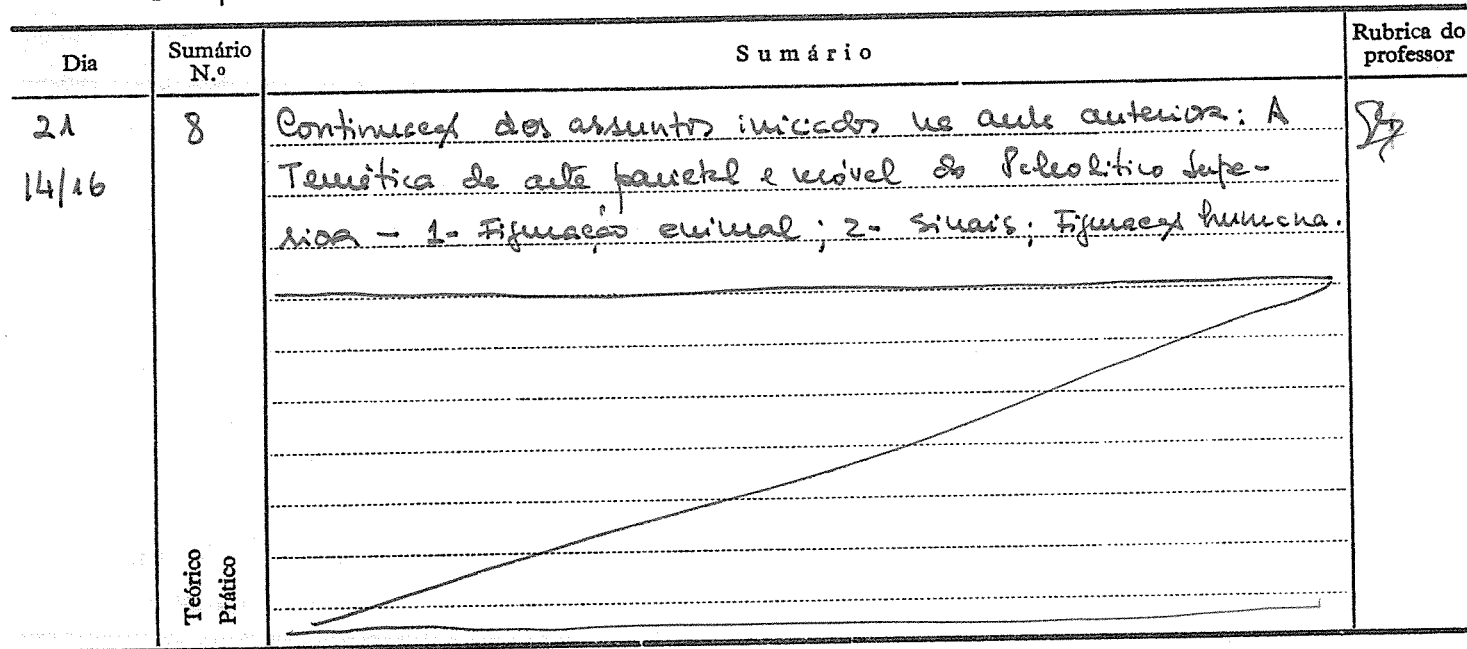 Dia Sumário N.º Sumário Rubrica do professor
21 8 Continuação dos assuntos iniciados na aula anterior: A
14/16 Temática da arte parietal e móvel do Paleolítico Supe-
rior - 1- Figuração animal; 2- Sinais; Figuração humana.
Teórico
Prático